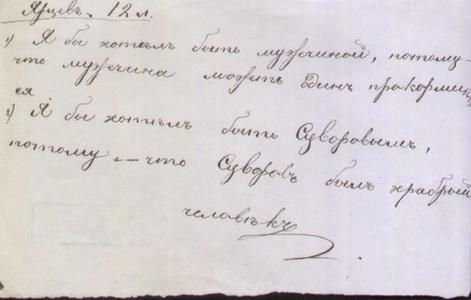 Ярцевъ. 12 л.
1) Я бы хотѣлъ быть мужчиной, потому-
что мужчина можетъ одинъ прокормить
ся.
2) Я бы хотѣлъ быть Суворовымъ,
потому — что Суворовъ былъ храбрый
человѣкъ